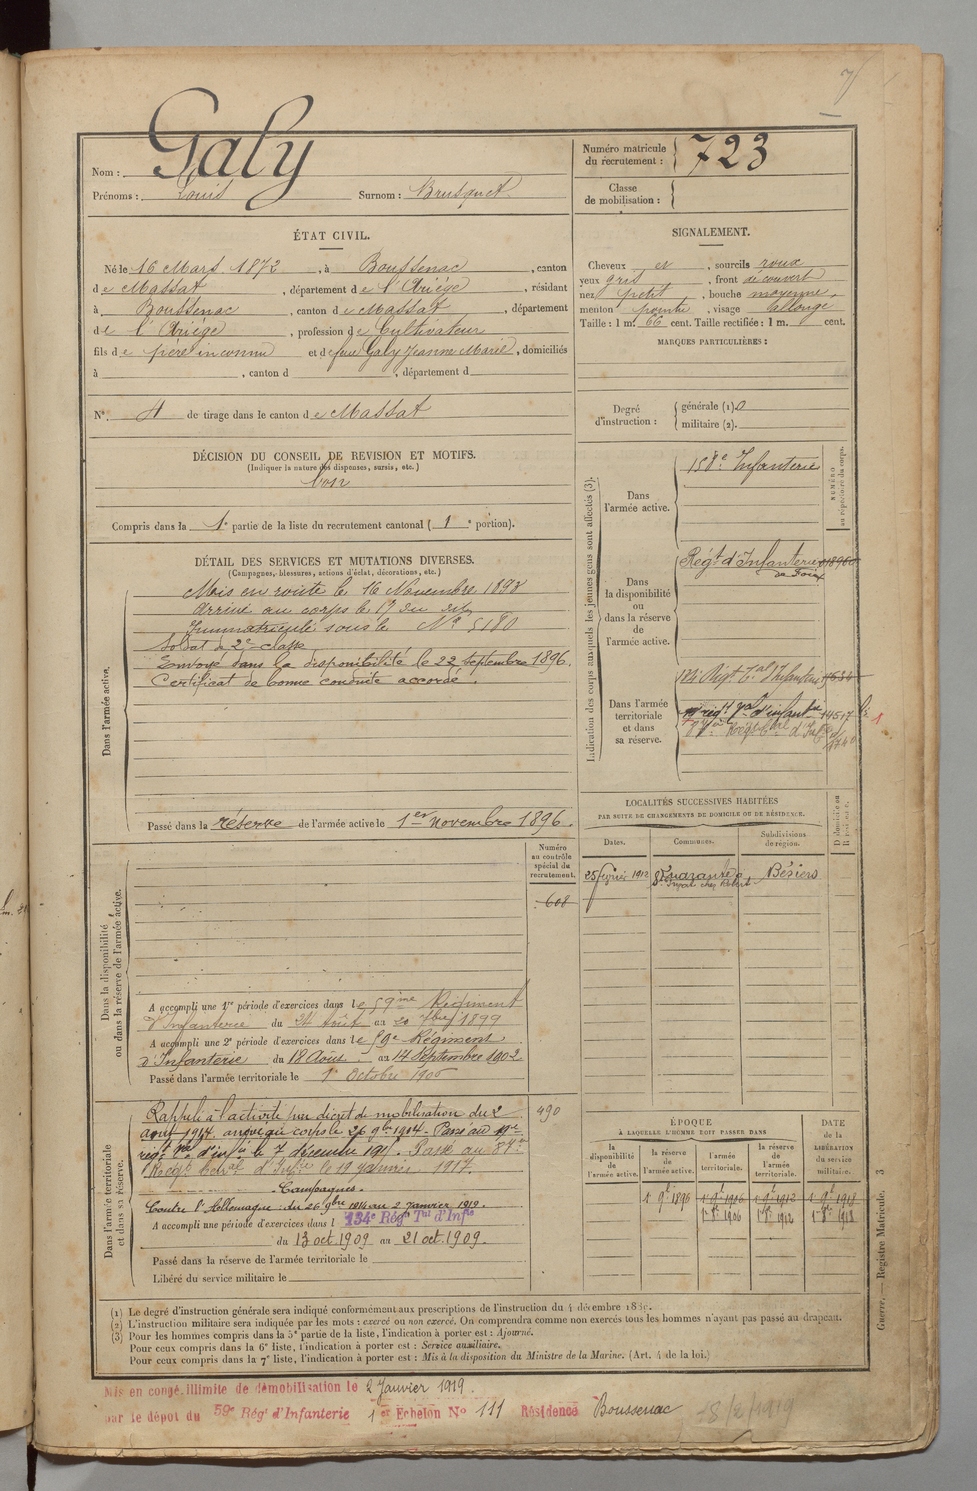 7
Galy
Nom :
Prénoms : Louis Surnom : Brusquet
Numéro matricule du recrutement : 723
Classe de mobilisation :
ÉTAT CIVIL.
Né le 16 Mars 1872, à Boussenac, canton
de Massat, département de l'Ariège, résidant
à Boussenac, canton de Massat, département
de l'Ariège, profession de Cultivateur
fils de père inconnu et de feue Galy Jeanne Marie, domiciliés
à , canton d , département d
N° 4 de tirage dans le canton de Massat
SIGNALEMENT.
Cheveux et , sourcils roux
yeux gris , front découvert
nez petit , bouche moyenne,
menton pointu , visage allongé
Taille : 1 m. 66 cent. Taille rectifiée : 1 m. cent.
MARQUES PARTICULIÈRES :
Degré d'instruction : générale (1) 0
militaire (2).
DÉCISION DU CONSEIL DE REVISION ET MOTIFS.
(Indiquer la nature des dispenses, sursis, etc.)
bon
Compris dans la 1e partie de la liste du recrutement cantonal ( 1 e portion).
DÉTAIL DES SERVICES ET MUTATIONS DIVERSES.
(Campagnes, blessures, actions d'éclat, décorations, etc.)
Dans l'armée active.
Mis en route le 16 Novembre 1893
Arrivé au corps le 17 du dit
Immatriculé sous le N° 5180
Soldat de 2e classe
Envoyé dans la disponibilité le 22 septembre 1896.
Certificat de bonne conduite accordé.
Passé dans la réserve de l'armée active le 1er novembre 1896.
Indication des corps auxquels les jeunes gens sont affectés (3).
NUMÉRO au répertoire du corps.
Dans l'armée active.
158e Infanterie
Dans la disponibilité ou dans la réserve de l'armée active.
Régt d'Infanterie
de Foix
Dans l'armée territoriale et dans sa réserve.
134 Régt Tal d'Infanterie
régt Tal d'infant 14517
Régt d'Inf
LOCALITÉS SUCCESSIVES HABITÉES
PAR SUITE DE CHANGEMENTS DE DOMICILE OU DE RÉSIDENCE.
Dates. Communes. Subdivisions de région. D domicile ou R résidence.
25 février 1912 Quarante Béziers
chez Robert
Dans la disponibilité ou dans la réserve de l'armée active.
Numéro au contrôle spécial du recrutement.
608
A accompli une 1re période d'exercices dans le 59me Régiment
d'Infanterie du 24 Août au 20 7bre 1899
A accompli une 2e période d'exercices dans le 59e Régiment
d'Infanterie du 18 Août au 14 Septembre 1902
Passé dans l'armée territoriale le 1er Octobre 1906
Dans l'armée territoriale et dans sa réserve.
490
Rappelé à l'activité par décret de mobilisation du 2
août 1914. arrivé au corps le 26 9bre 1914. Passé au
régt Tal d'infie le 7 décembre 191 . Passé au 87e
Régt teral d'Infie le 19 janvier 1917.
Campagnes
Contre l'Allemagne : du 26 9bre 1914 au 2 Janvier 1919.
A accompli une période d'exercices dans l 134e Régt Tal d'Infie
du 13 oct. 1909 au 21 oct. 1909.
Passé dans la réserve de l'armée territoriale le
Libéré du service militaire le
ÉPOQUE
À LAQUELLE L'HOMME DOIT PASSER DANS
la disponibilité de l'armée active. la réserve de l'armée active. l'armée territoriale. la réserve de l'armée territoriale.
DATE de la LIBÉRATION du service militaire.
1 9e 1896 1 9e 1906 1 9e 1912 1 9e 1918
1 8e 1906 1 8e 1912 1 8e 1918
Guerre. — Registre Matricule. 3
(1) Le degré d'instruction générale sera indiqué conformément aux prescriptions de l'instruction du 4 décembre 18
(2) L'instruction militaire sera indiquée par les mots : exercé ou non exercé. On comprendra comme non exercés tous les hommes n'ayant pas passé au drapeau.
(3) Pour les hommes compris dans la 5e partie de la liste, l'indication à porter est : Ajourné.
Pour ceux compris dans la 6e liste, l'indication à porter est : Service auxiliaire.
Pour ceux compris dans la 7e liste, l'indication à porter est : Mis à la disposition du Ministre de la Marine. (Art. 4 de la loi.)
Mis en congé illimité de démobilisation le 2 Janvier 1919.
par le dépot du 59e Régt d'Infanterie 1er Echelon N° 111 Résidence Boussenac 18/2/1919